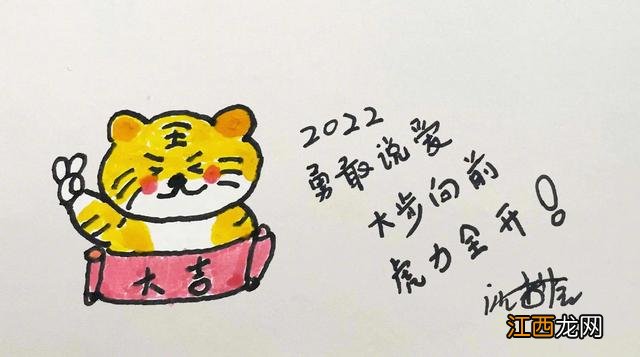 2022
勇敢说爱
大步向前
虎力全开!
大吉
江西龙网